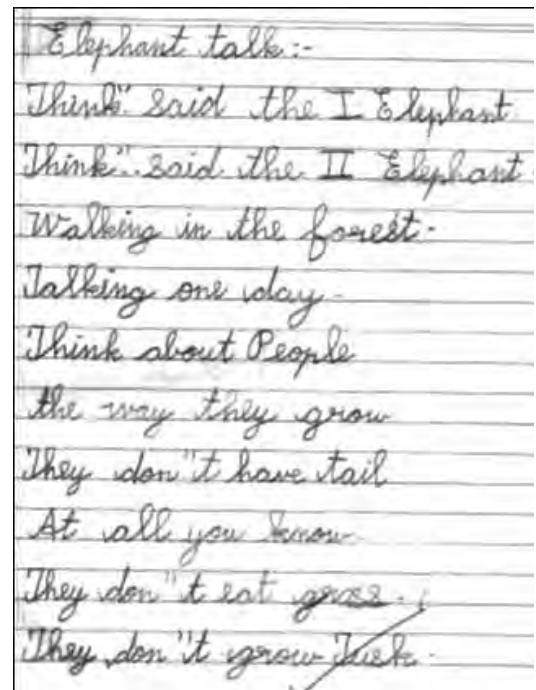 Elephant talk:-
Think" said the I Elephant
Think".. said the II Elephant.
Walking in the forest.
Talking one day.
Think about People
the way they grow
They don"t have tail
At all you know
They don"t eat grass.
They don"t grow Tusk.